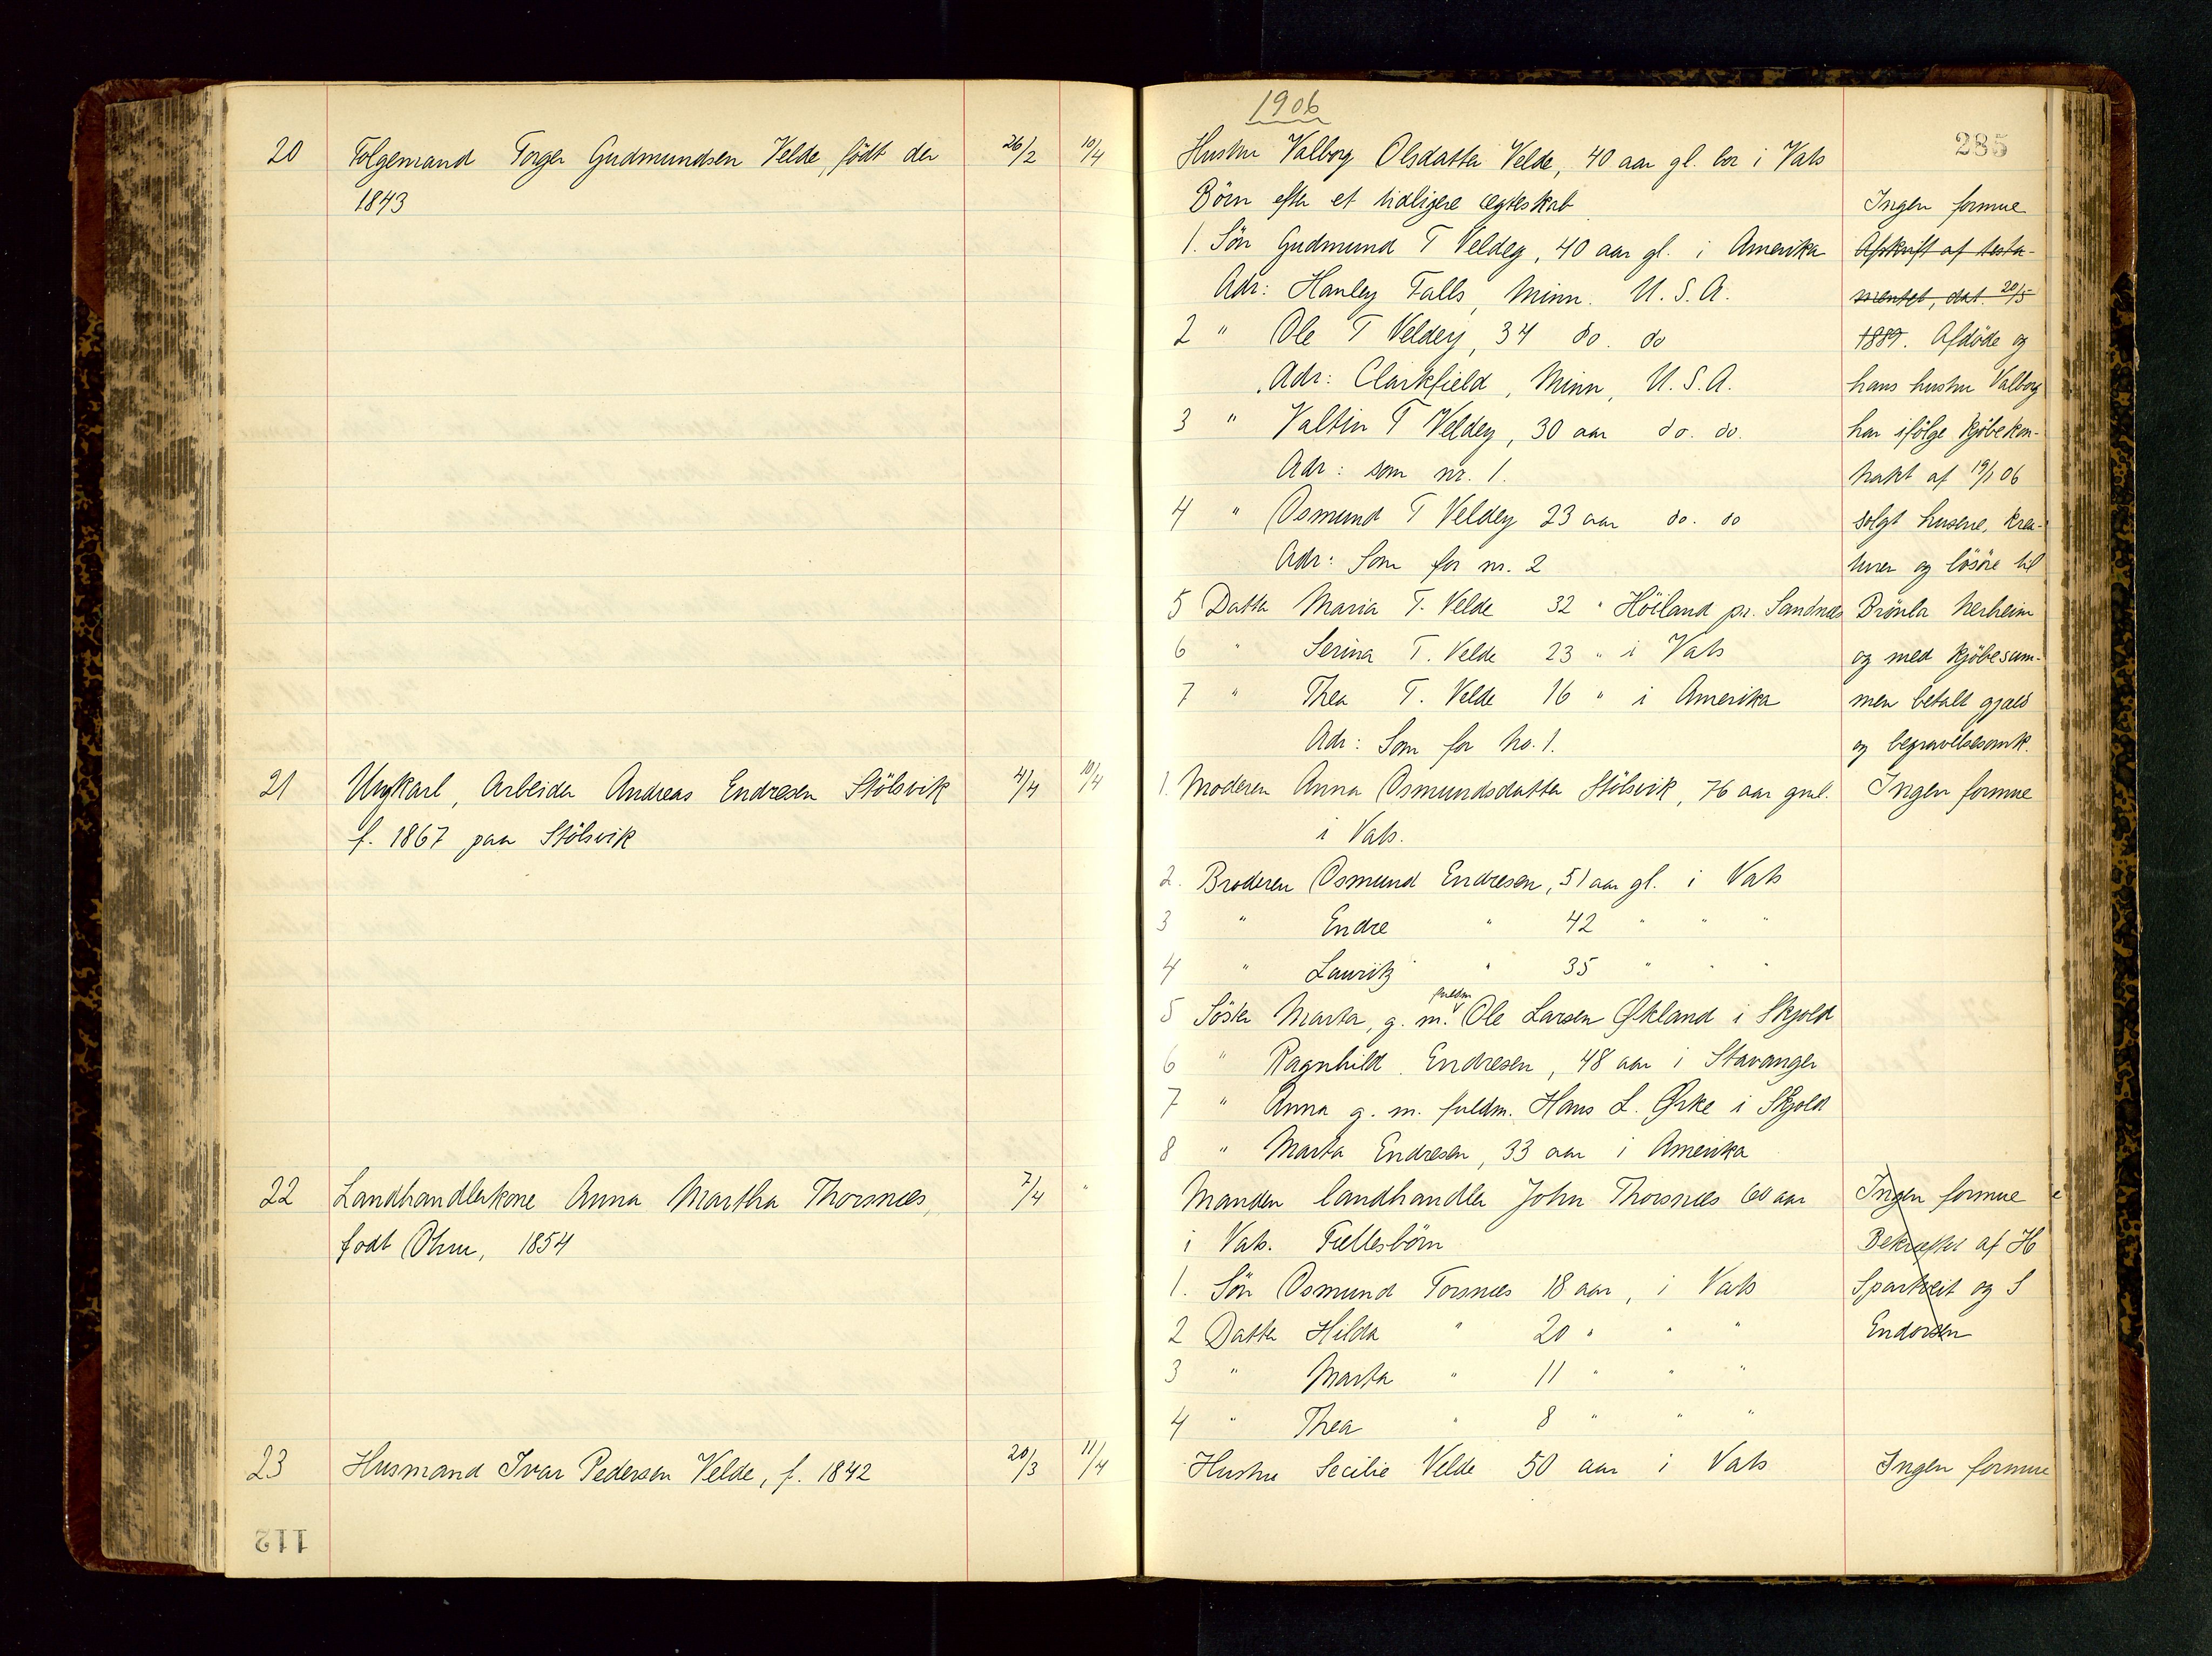 1906
285
20 Folgemand Torger Gudmundsen Velde, födt der 26/2 10/4
1843
Hustru Valborg Olsdatter Velde, 40 aar gl. bor i Vats
Börn efter et tidligere ægteskab
1. Sön Gudmund T Veldey, 40 aar gl. i Amerika
Adr: Hanley Falls, Minn. U.S.A.
2 " Ole T Veldey, 34 do. do
Adr: Clarkfield, Minn, U.S.A.
3 " Valtin T Veldey, 30 aar do. do.
Adr: som nr. 1.
4 " Osmund T Veldey 23 aar do. do
Adr: Som for nr. 2
5 Datter Maria T. Velde 32 " Höiland pr. Sandnæs
6 " Serina T. Velde 23 " i Vats
7 " Thea T. Velde 16 " i Amerika
Adr: Som for No. 1.
Ingen formue
Afskrift af testa-
mentet, dat. 20/5
1889. Afdöde og
hans hustru Valborg
har ifölge kjöbekon-
trakt af 19/1 06
solgt husene, krea-
turer og lösöre til
Brönla Nerheim
og med kjöbesum-
men betalt gjæld
og begravelsesomk.
21 Ungkarl, Arbeider Andreas Endresen Stölsvik 4/4 10/4
f. 1867 paa Stölsvik
1. Moderen Anna Osmundsdatter Stölsvik, 76 aar gml. Ingen formue
i Vats.
2. Broderen Osmund Endresen, 51 aar gl. i Vats
3 " Endre " 42 " " "
4 " Lauritz " 35 " " "
5 Söster Marta, g. m. fuldm Ole Larsen Økland i Skjold
6 " Ragnhild Endresen, 48 aar i Stavanger
7 " Anna g. m. fuldm. Hans L. Ørke i Skjold
8 " Marta Endresen, 33 aar i Amerika
22 Landhandlerkone Anna Martha Thorsnæs, 7/4 "
født Ohm, 1854
Manden landhandler John Thorsnæs 60 aar
i Vats. Fællesbörn
1. Sön Osmund Torsnæs 18 aar, i Vats
2 Datter Hilda " 20 " " "
3 " Marta " 11 " " "
4 " Thea " 8 " " "
Ingen formue
Bekræftet af H
Spartveit og S
Endorsen
23 Husmand Ivar Pedersen Velde, f. 1842 20/3 11/4
Hustru Secilie Velde 50 aar i Vats Ingen formue
112